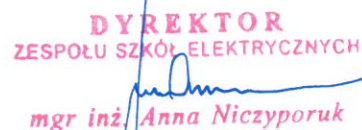 DYREKTOR
ZESPOŁU SZKÓŁ ELEKTRYCZNYCH
mgr inż. Anna Niczyporuk